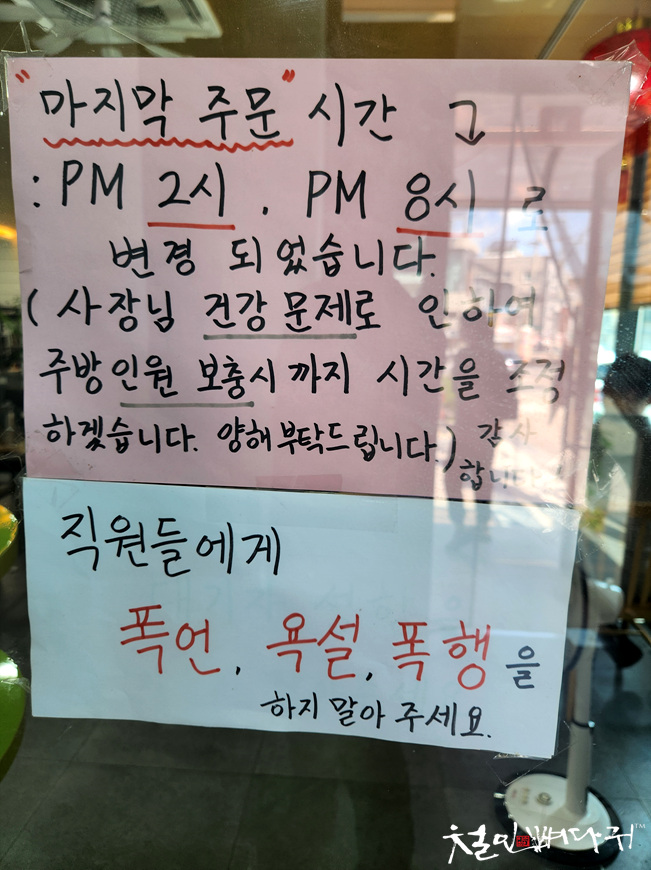 "마지막 주문" 시간
: PM 2시 , PM 8시 로
변경 되었습니다.
(사장님 건강 문제로 인하여
주방인원 보충시 까지 시간을 조적
하겠습니다. 양해부탁드립니다.) 감사
합니다
직원들에게
폭언, 욕설, 폭행을
하지 말아 주세요.